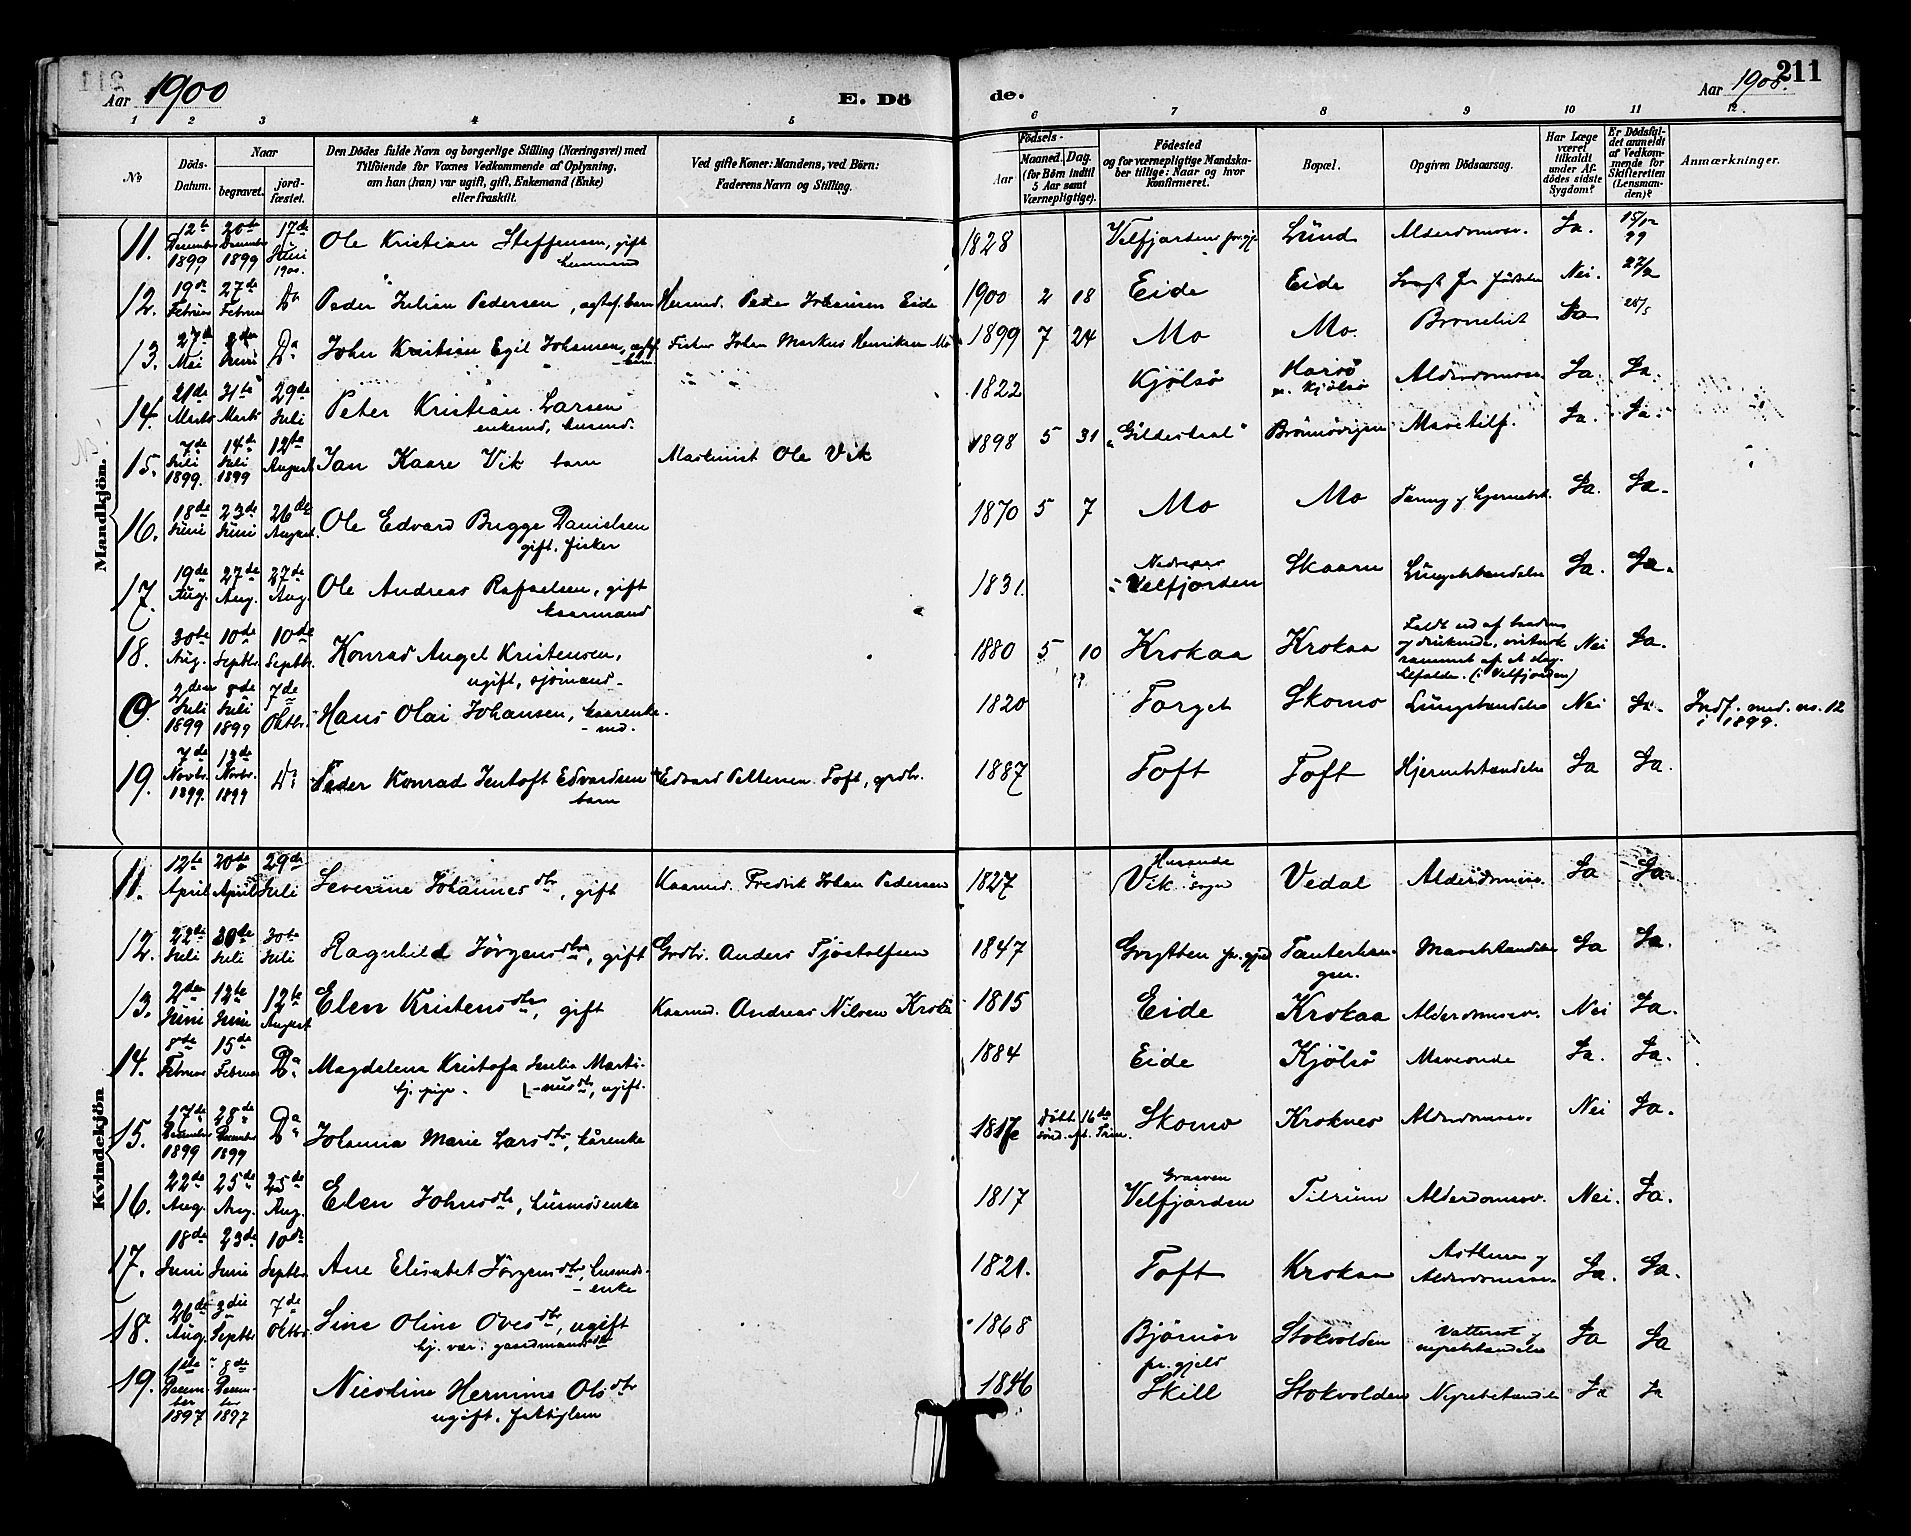 211
Aar 1900
E. Dö
de.
Aar 1900.
1 2 3 4 5 6 7 8 9 10 11 12
No
Döds-Datum.
Naar
begravet.
jord-fæstet.
Den Dödes fulde Navn og borgerlige Stilling (Næringsvei) med
Tilföiende for Voxnes Vedkommende af Oplysning,
om han (hun) var ugift, gift, Enkemand (Enke)
eller fraskilt.
Ved gifte Koner: Mandens, ved Börn:
Faderens Navn og Stilling.
Födsels-
Aar
Maaned. Dag.
(for Börn indtil
5 Aar samt
Værnepligtige).
Födested
og for værnepligtige Mandska-
ber tillige: Naar og hvor
konfirmeret.
Bopæl.
Opgiven Dödsaarsag.
Har Læge
været
tilkaldt
under Af-
dødes sidste
Sygdom?
Er Dödsfal-
det anmeldt
af Vedkom-
mende for
Skifteretten
(Lensman-
den)?
Anmærkninger.
Mandkjön.
11. 12te December 1899 20de December 1899 17de Juni 1900. Ole Kristian Steffensen, gift husmand 1828 Velfjordens Lund Alderdomssv. Ja. 15/12 99
12. 19de Februar 27de Februar Do Peder Julian Pedersen, ægtef. barn Husmd. Peder Johansen Eide 1900 2 18 Eide Eide Svagh. fr. födselen Nei. 27/2
13. 27de Mai Juni Do John Kristian Egil Johansen, ægtef. barn Fisker Johan Markus Henriksen Mo 1899 7 24 Mo Mo. Ja 28/5
14. 21de Marts 31te Marts 29de Juli Peter Kristian Larsen enkemd, husmd. 1822 Kjölsö Harsö p. Kjölsö Alderdomssv. Ja. Ja.
15. 7de Juli 1899. 14de Juli 1899 12te August Jan Kaare Vik barn Maskinist Ole Vik 1898 5 31 "Gildeskaal" Brönnösyen Ja. Ja.
16. 18de Juni 23de Juni 26de August. Ole Edvard Brygge Danielsen gift. fisker 1870 5 7 Mo Mo Ja. Ja.
17. 19de Aug. 27de Aug. 27de Aug. Ole Andreas Rafaelsen, gift kaarmand 1831. Velfjorden Skaarn Lungebetændelse Ja. Ja.
18. 30te Aug. 10de Septbr. 10de Septbr. Konrad Angel Kristensen, ugift, sjömand. 1880 5 10 Krokaa Krokaa Faldt ud af baaden og druknede, (i Velfjorden) Nei Ja.
0. 2den Juli 1899 8de Juli 1899 7de Oktbr. Hans Olai Johansen, kaarenkemd. 1820 Torget Skomo Lungebetændelse Nei Ja. Indf. med. no. 12 i 1899.
19. 7de Novbr. 1899. 13de Novbr. 1899 Do Peder Konrad Jentoft Edvardsen barn Edvard Pettersen Toft, grdbr. 1887 Toft Toft Hjernebetændelse Ja Ja.
Kvindekjön
11. 12te April 20de April 29de Juli Severine Johannesdtr, gift Kaarmd. Fredrik Johan Pedersen 1827 Vik sogn Vedal Alderdomssv. Ja Ja.
12. 22de Juli 30de Juli 30te Juli Ragnhild Jörgensdtr, gift Grdbr. Anders Tjöstolfsen 1847 Grytten pr.gjeld Marvbetændelse Ja Ja.
13. 2den Juni 12te Juni 12te August Elen Kristensdtr, gift Kaarmd. Andreas Nilsen Krokaa 1815 Eide Krokaa Alderdomssv. Nei Ja.
14. 8de Februar 15de Februar Do Magdalena Kristofa Julia Martinusdtr, ugift. tj. pige. 1884 Eide Kjölsö Maveonde Ja. Ja.
15. 17de December 1899 28de December 1899 Do Johanna Marie Larsdtr, kårenke 1817 Döbt 16de sönd. eft. Trin. Skomo Kroknes Alderdomssv. Nei Ja.
16. 22de Aug. 25de Aug. 25de Aug. Elen Johnsdtr, husmdsenke 1817 Velfjorden Tilrum Alderdomssv. Nei. Ja.
17. 18de Juni 23de Juni 10de Septbr. Ane Elisabet Jörgensdtr, husmdsenke 1821. Toft Krokaa Asthma og Alderdomssv. Ja. Ja.
18. 26de Aug. 3die Septbr 7de Oktbr. Sine Oline Ovesdtr, ugift tj. vær. gaardmandsdtr 1868 Björnör pr.gjeld Stokvolden Vattersot og nyrebetændelse Ja Ja
19. 1ste December 1897 8de December 1897 Nicoline Hermine Olsdtr ugift. fattiglem 1846 Skill Stokvolden Nyrebetændelse Ja Ja